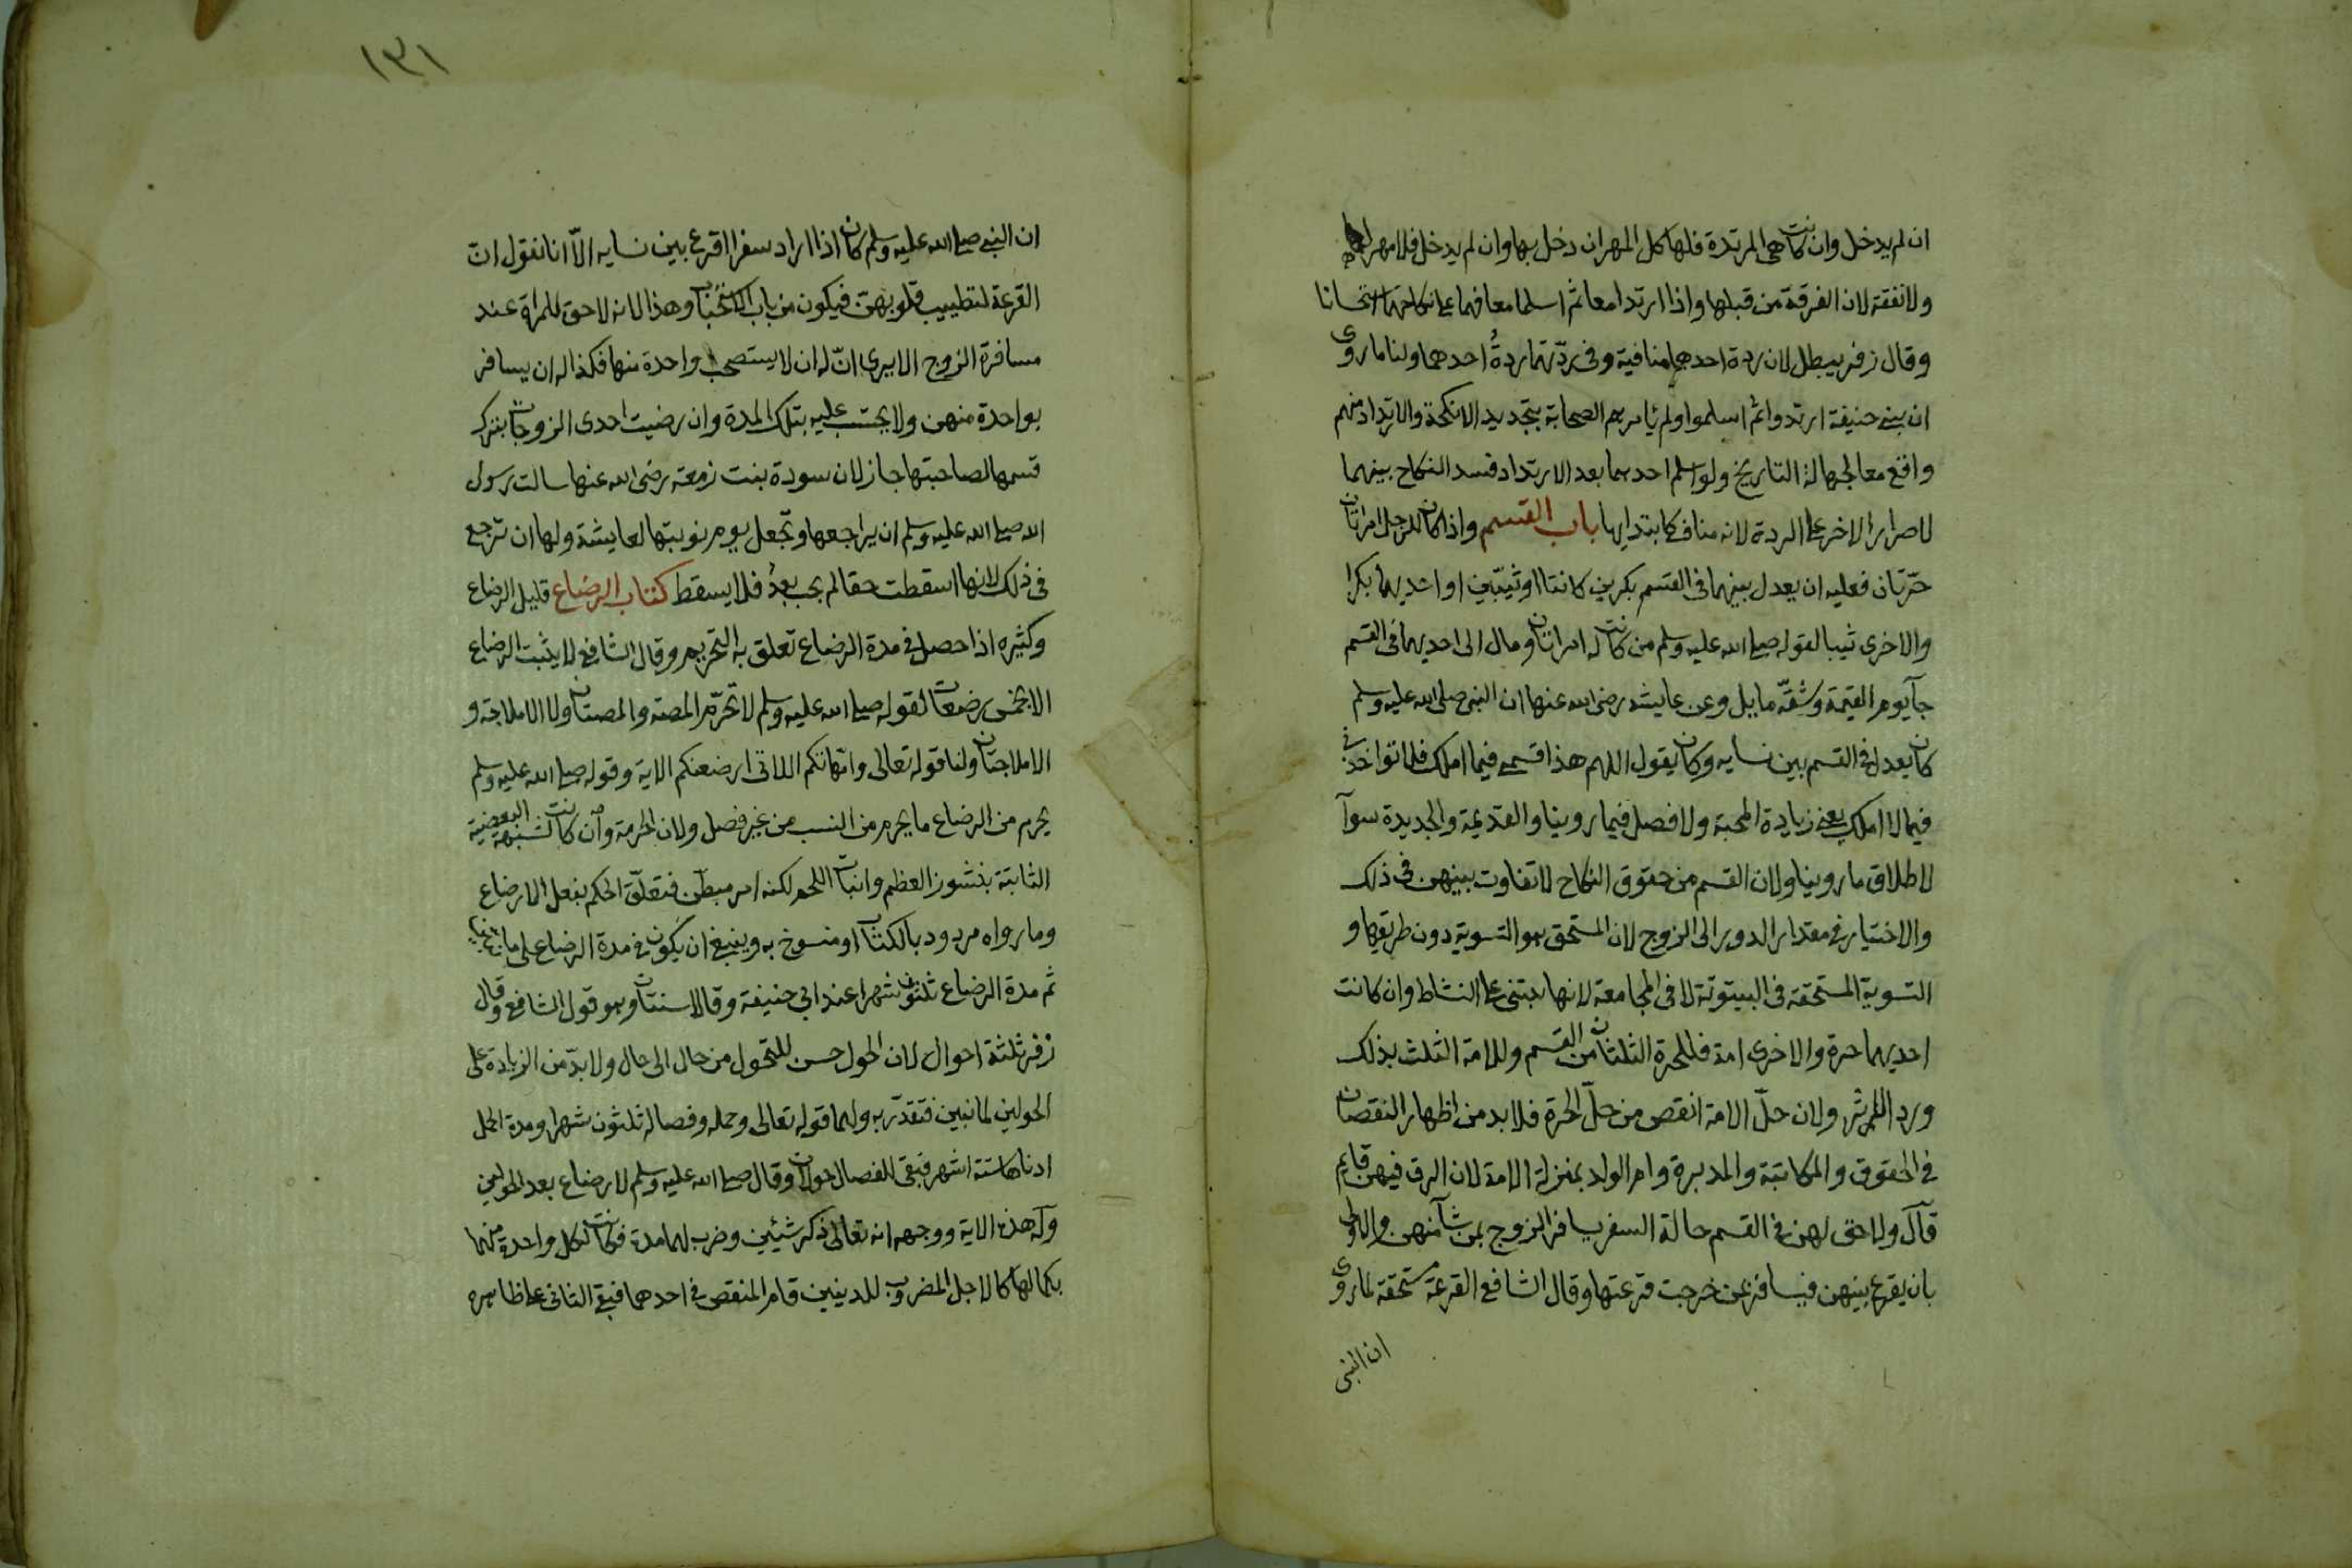 ان لم يدخل وان كانت هى المرتدة فلها كل المهر ان دخل بها وان لم يدخل فلا مهر لها
ولا نفقة لان الفرقة من قبلها واذا ارتدا معا ثم اسلما معا فهما على نكاحهما استحسانا
وقال زفر يبطل لان ردة احدهما منافية وفى ردّتهما ردةُ احدهما ولنا ما روى
ان بنى حنيفة ارتدوا ثم اسلموا ولم يأمرهم الصحابة بتجديد الانكحة والارتداد منهم
واقع معا لجهالة التاريخ ولو اسلم احدهما بعد الارتداد فسد النكاح بينهما
لاصرار الاخر على الردة لانه مناف كابتدايها باب القسم واذا كان للرجل امراتان
حرّتان فعليه ان يعدل بينهما فى القسم بكرين كانتا او ثيبّين او احديهما بكرا
والاخرى ثيبا لقوله صلى الله عليه وسلم من كانت له امراتان ومال الى احديهما فى القسم
جآ يوم القيمة وشقّه مايل وعن عايشه رضى الله عنها ان النبى صلى الله عليه وسلم
كان يعدل فى القسم بين نسايه وكان يقول اللهم هذا قسمى فيما املك فلا تواخذنى
فيما لا املك يعنى زيادة المحبة ولا فصل فيما روينا والقديمة والجديدة سوآ
لاطلاق ما روينا ولان القسم من حقوق النكاح لا تفاوت بينهن فى ذلك
والاختيار فى مقدار الدور الى الزوج لان المستحق هو التسوية دون طريقها و
التسوية المستحقة فى البيتوتة لا فى المجامعة لانها تبتنى على النشاط وان كانت
احديهما حرة والاخرى امة فللحرة الثلثان من القسم وللامة الثلث بذلك
ورد الاثر ولان حلّ الامة انقص من حلّ الحرة فلا بد من اظهار النقصان
فى الحقوق والمكاتبة والمدبرة وام الولد بمنزلة الامة لان الرق فيهن قايم
قآل ولا حق لهن فى القسم حالة السفر يسافر الزوج بمن شآ منهن والاولى
بان يقرع بينهن فيسافر بمن خرجت قرعتها وقال الشافعى القرعة مستحقة لما روى
ان النبى
١٣١
ان النبى صلى الله عليه وسلم كان اذا اراد سفرا اقرع بين نسايه الّا انا نقول انّ
القرعة لتطييب قلوبهنّ فيكون من باب الاستحباب وهذا لانه لا حق للمراة عند
مسافرة الزوج الا يرى انّ له ان لا يستصحب واحدة منها فكذا له ان يسافر
بواحدة منهن ولا يحتسب عليه بتلك المدة وان رضيت احدى الزوجات بترك
قسمها لصاحبتها جاز لان سودة بنت زمعة رضى الله عنها سالت رسول
الله صلى الله عليه وسلم ان يراجعها وتجعل يوم نوبتها لعايشة ولها ان ترجع
فى ذلك لانها اسقطت حقا لم يجب بعدُ فلا يسقط كتاب الرضاع قليل الرضاع
وكثيره اذا حصل فى مدة الرضاع تعلق به التحريم وقال الشافعى لا يثبت الرضاع
الا بخمس رضعات لقوله صلى الله عليه وسلم لا تحرّم المصة والمصتان ولا الاملاجة و
الاملاجتان ولنا قوله تعالى وامّهاتكم اللاتى ارضعنكم الاية وقوله صلى الله عليه وسلم
يحرم من الرضاع ما يحرم من النسب من غير فصل ولان الحرمة وان كانت لشبهة البعضية
الثابتة بنشوز العظم وانبات اللحم لكنه امر مبطّن فتعلّق الحكم بفعل الارضاع
وما رواه مردود بالكتاب او منسوخ به وينبغى ان يكون فى مدة الرضاع على ما
ثم مدة الرضاع ثلثون شهرا عند ابى حنيفة وقالا سنتان وهو قول الشافعى وقال
زفر ثلثة احوال لان الحول حسن للتحول من حال الى حال ولا بدّ من الزيادة على
الحولين لما نبين فتقدّر به ولهما قوله تعالى وحمله وفصاله ثلثون شهرا ومدة الحمل
ادناها ستة اشهر فبقى للفصال حولان وقال صلى الله عليه وسلم لا رضاع بعد الحولين
وله هذه الاية ووجهه انه تعالى ذكر شيئين وضرب لهما مدة فكانت لكل واحدة منهما
بكمالها كالاجل المضروب للدينين قام المنقص فى احدهما فبقى الثانى على ظاهره